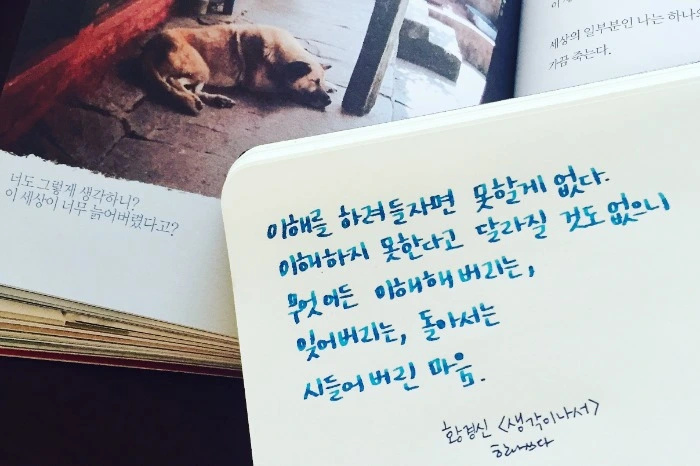 세상의 일부분인 나는 하나의
가끔 죽는다.
너도 그렇게 생각하니?
이 세상이 너무 늙어버렸다고?
이해를 하려들자면 못할게 없다.
이해하지 못한다고 달라질 것도 없으니
무엇이든 이해해 버리는,
잊어버리는, 돌아서는
시들어 버린 마음.
황경신 <생각이나서>
하나쓰다